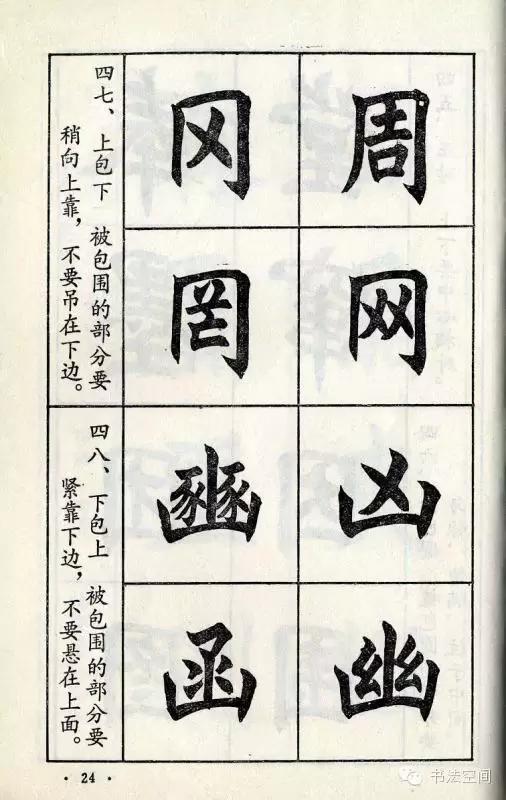 四七、上包下 被包围的部分要
稍向上靠，不要吊在下边。
周
网
冈
罔
四八、下包上 被包围的部分要
紧靠下边，不要悬在上面。
凶
幽
豳
函
· 24 ·
书法空间